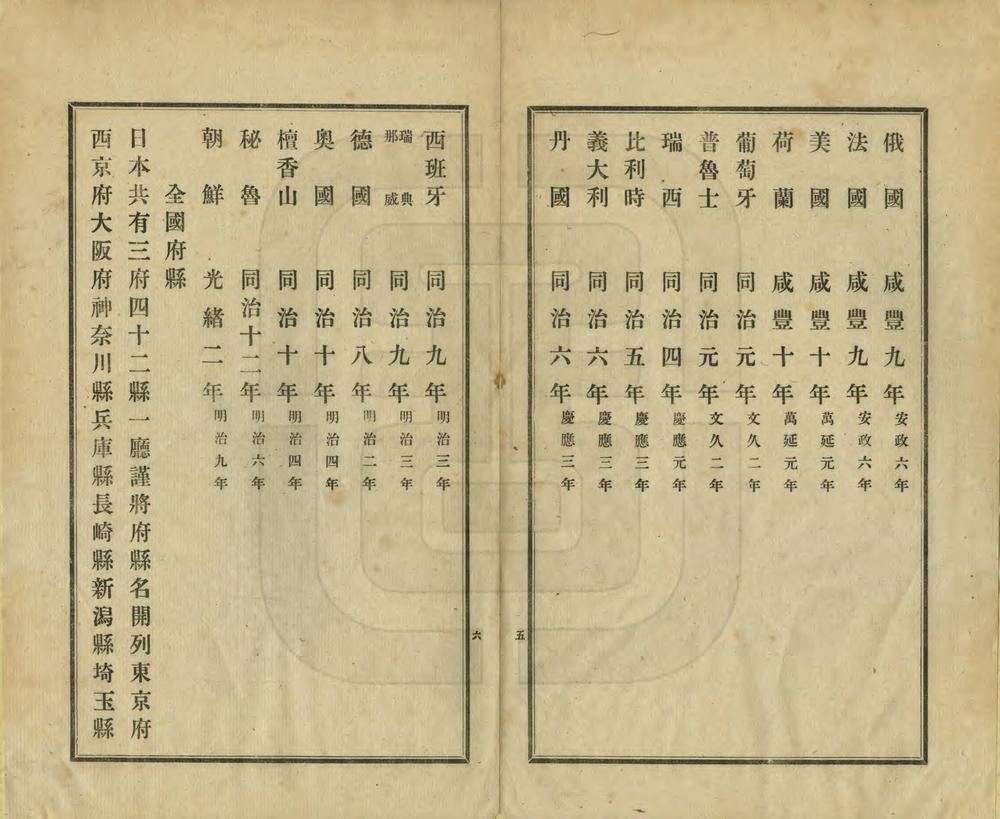 俄國 咸豐九年安政六年
法國 咸豐九年安政六年
美國 咸豐十年萬延元年
荷蘭 咸豐十年萬延元年
葡萄牙 同治元年文久二年
普魯士 同治元年文久二年
瑞西 同治四年慶應元年
比利時 同治五年慶應三年
義大利 同治六年慶應三年
丹國 同治六年慶應三年
五
西班牙 同治九年明治三年
瑞典那威 同治九年明治三年
德國 同治八年明治二年
奧國 同治十年明治四年
檀香山 同治十年明治四年
秘魯 同治十二年明治六年
朝鮮 光緒二年明治九年
全國府縣
日本共有三府四十二縣一廳謹將府縣名開列東京府
西京府大阪府神奈川縣兵庫縣長崎縣新潟縣埼玉縣
六